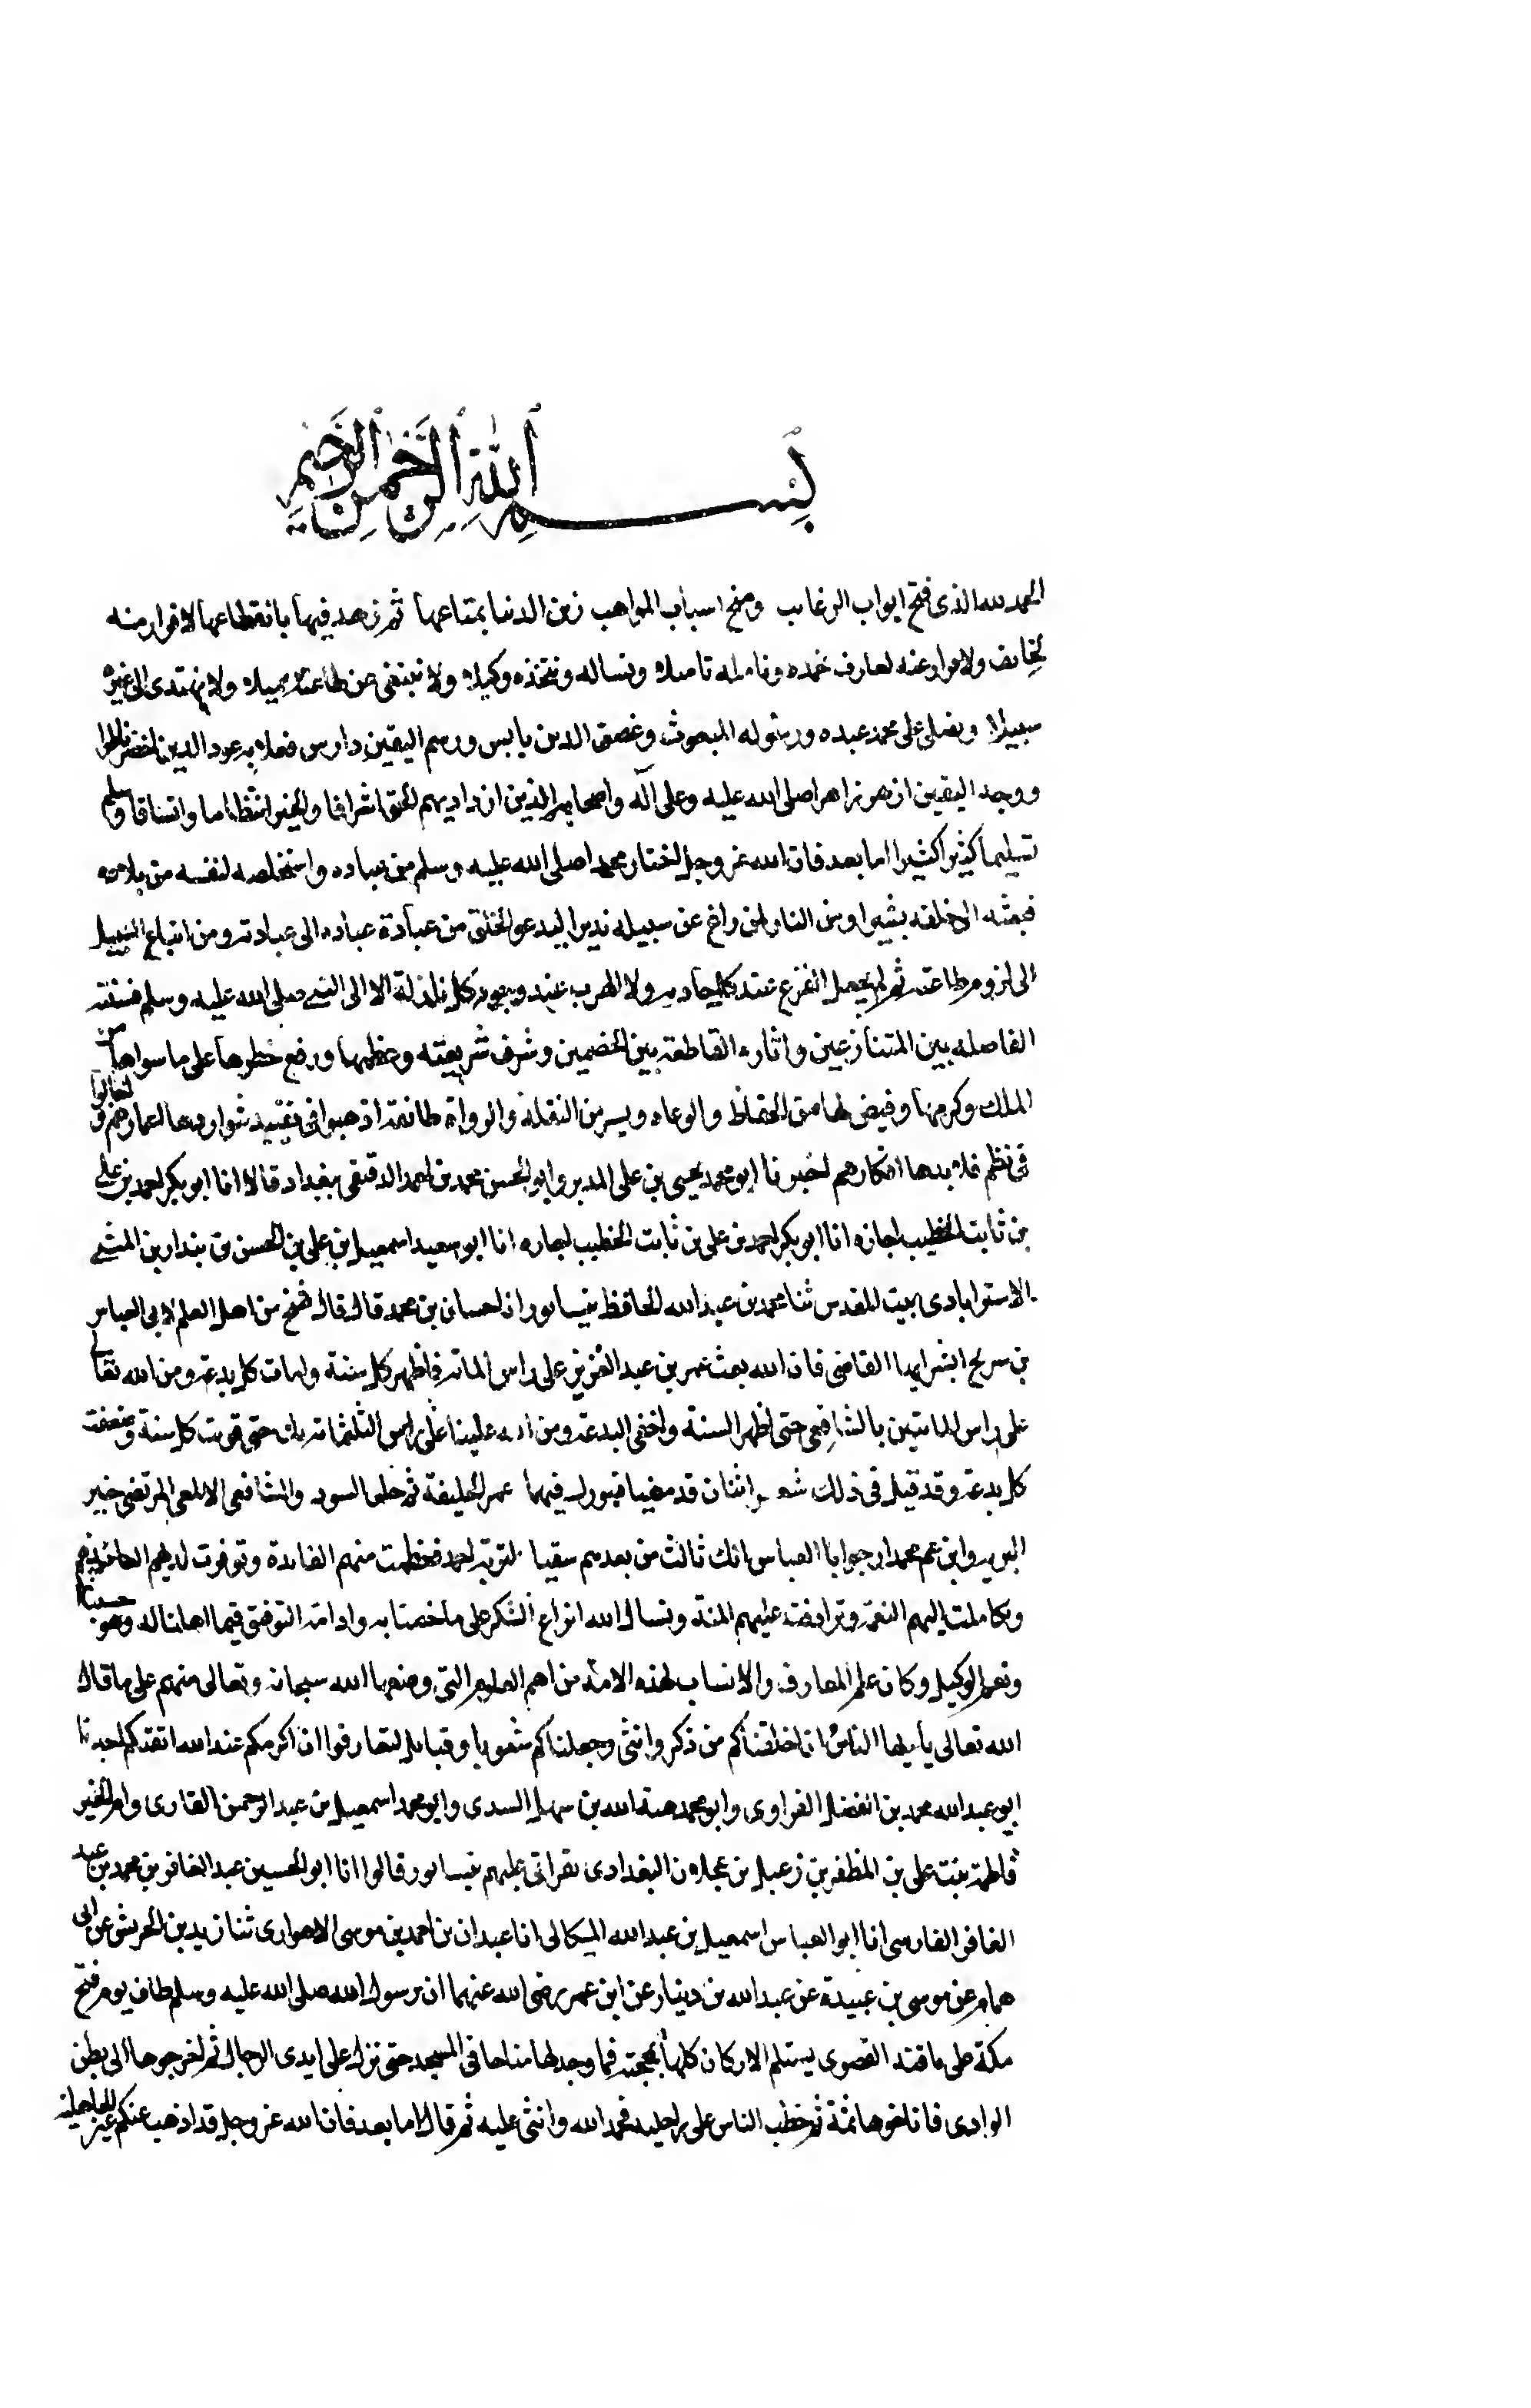 بِسْمِ ٱللَّهِ ٱلرَّحْمٰنِ ٱلرَّحِيمِ
الحمد لله الذى فتح ابواب الرغايب ومنح اسباب المواهب زين الدنيا بمتاعها ثم زهد فيها بانقطاعها لا فرار منه
لخايف ولا عنه لعارف نحمده ونامله تاميلا ونساله ونتخذه وكيلا ولا نبتغى عن طاعته مميلا ولا نهتدى الى غيره
سبيلا ونصلى على محمد عبده ورسوله المبعوث وغصن الدين يابس ورسم اليقين دارس به عود الدين اخضر ناظرا
ووجد اليقين ازهر زاهرا صلى الله عليه وعلى آله واصحابه الذين ازداد بهم الحق اشراقا والخير انتظاما واتساقا وسلم
تسليما كثيرا كثيرا اما بعد فان الله عز وجل اختار محمدا صلى الله عليه وسلم من عباده واستخلصه لنفسه من بلاده
فبعثه الى خلقه بشيرا ومن النار لمن زاغ عن سبيله نذيرا ليدعو الخلق من عبادة عباده الى عبادته ومن اتباع السبيل
الى لزوم طاعته ثم لم يجعل الفزع عند كل حادثه ولا الهرب عند وجود كل نازلة الا الى النبى صلى الله عليه وسلم فسنته
الفاصله بين المتنازعين واثاره القاطعة بين الخصمين وشرف شريعته وعظمها ورفع خطرها على ما سواها من
الملك وكرمها وقيض لها من الحفاظ والوعاه ويسر من النقلة والرواة طائفة اذهبوا فى تقييد شواردها اعمارهم واجالوا
فى نظم قلايدها افكارهم اخبرنا ابو محمد يحيى بن على المدير وابو الحسن محمد بن احمد الدقيقى ببغداد قالا انا ابو بكر احمد بن على
بن ثابت الخطيب اجازه انا ابو بكر احمد بن على بن ثابت الخطيب اجازه انا ابو سعيد اسمعيل بن على بن الحسن بن بندار بن المثنى
الاستراباذى ببيت المقدس ثنا محمد بن عبد الله الحافظ بنيسابور انا حسان بن محمد قال قال شيخ من اهل العلم لابى العباس
بن سريج ابشر ايها القاضى فان الله بعث عمر بن عبد العزيز على راس الماية فاظهر كل سنة وامات كل بدعة ومن الله تعالى
على راس المايتين بالشافعى حتى اظهر السنة واخفى البدعة ومن الله علينا على راس الثلثماية بك حتى قويت كل سنة وضعفت
كل بدعة وقد قيل فى ذلك شعر اثنان قد مضيا فبورك فيهما عمر الخليفة ثم خلف السودد والشافعى الالمعى المرتضى خير
البريه وابن عم محمد ارجوا ابا العباس انك ثالث من بعدهم سقيا لتربة احمد فعظمت منهم الفايدة وتوفرت لديهم
وتكاملت اليهم النعمة وترادفت عليهم المنة ونسال الله انواع الشكر على ما خصنا به وادامة التوفيق فيما اهلنا له وهو حسبنا
ونعم الوكيل وكان علم المعارف والانساب لهذه الامة من اهم العلوم التى وضعها الله سبحانه وتعالى منهم على ما قال
الله تعالى يأيها الناس انا خلقناكم من ذكر وانثى وجعلناكم شعوبا وقبائل لتعارفوا ان اكرمكم عند الله اتقكم اخبرنا
ابو عبد الله محمد بن الفضل الفراوى وابو محمد هبة الله بن سهل السدى وابو محمد اسمعيل بن عبد الرحمن القارى وام الخير
فاطمة بنت على بن المظفر بن زعبل بن عجلان البغدادى بقراتى عليهم بنيسابور قالوا انا ابو الحسين عبد الغافر بن محمد بن عبد
الغافر الفارسى انا ابو العباس اسمعيل بن عبد الله الميكالى انا عبدان بن احمد بن موسى الاهوازى ثنا زيد بن الحريش عن ابى
همام عن موسى بن عبيدة عن عبد الله بن دينار عن ابن عمر رضى الله عنهما ان رسول الله صلى الله عليه وسلم طاف يوم فتح
مكة على ناقته القصوى يستلم الاركان كلها بمحجنه فما وجد لها مناخا فى المسجد حتى نزل على ايدى الرجال ثم اخرجوها الى بطن
الوادى فاناخوها ثمة ثم خطب الناس على راحلته فحمد الله واثنى عليه ثم قال اما بعد فان الله عز وجل قد اذهب عنكم عيبة الجاهلية